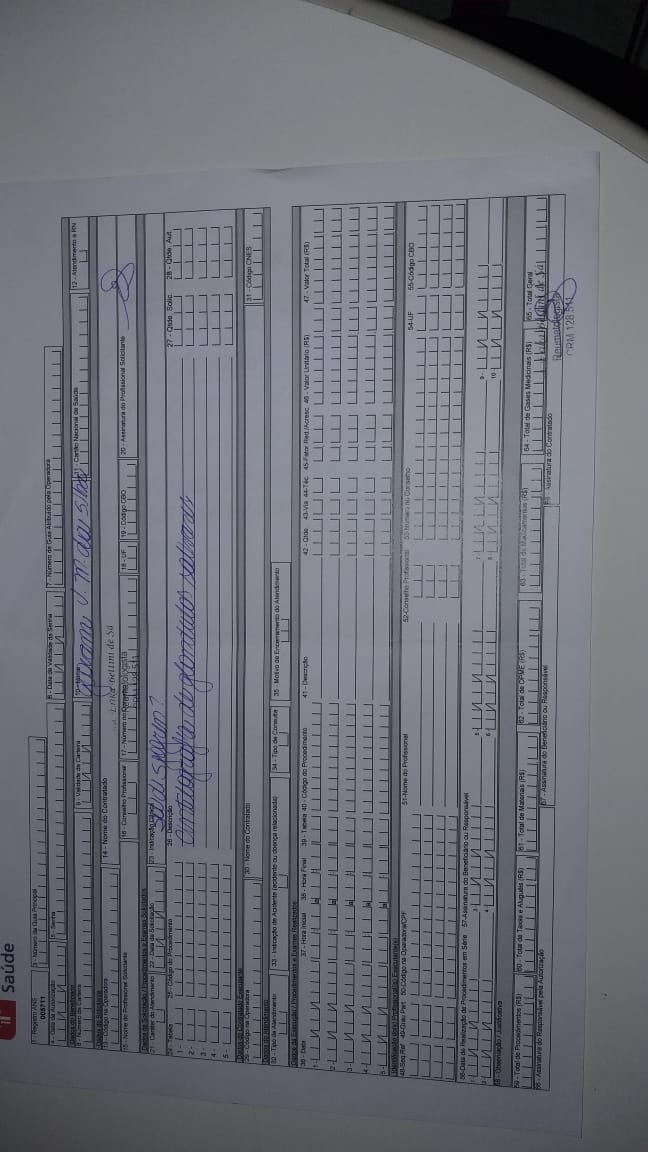 Saúde
1 - Registro ANS
005711
3 - Número da Guia Principal
4 - Data da Autorização
5 - Senha
6 - Data de Validade da Senha
7 - Número da Guia Atribuído pela Operadora
Dados do Beneficiário
8 - Número da Carteira
9 - Validade da Carteira
10 - Nome
11 - Cartão Nacional de Saúde
12 - Atendimento a RN
Dados do Solicitante
13 - Código na Operadora
14 - Nome do Contratado
Bellini de Sá
15 - Nome do Profissional Solicitante
16 - Conselho Profissional
17 - Número no Conselho
18 - UF
19 - Código CBO
20 - Assinatura do Profissional Solicitante
Reumatologista
Dados da Solicitação / Procedimentos e Exames Solicitados
21 - Caráter do Atendimento
22 - Data da Solicitação
23 - Indicação Clínica
24 - Tabela
25 - Código do Procedimento
26 - Descrição
27 - Qtde. Solic.
28 - Qtde. Aut.
1 -
cintilografia de glândulas salivares
2 -
3 -
4 -
5 -
Dados do Contratado Executante
29 - Código na Operadora
30 - Nome do Contratado
31 - Código CNES
Dados do Atendimento
32 - Tipo de Atendimento
33 - Indicação de Acidente (acidente ou doença relacionada)
34 - Tipo de Consulta
35 - Motivo de Encerramento do Atendimento
Dados da Execução / Procedimentos e Exames Realizados
36 - Data
37 - Hora Inicial
38 - Hora Final
39 - Tabela
40 - Código do Procedimento
41 - Descrição
42 - Qtde
43-Via
44-Téc.
45-Fator Red./Acresc.
46 - Valor Unitário (R$)
47 - Valor Total (R$)
Identificação do(s) Profissional(is) Executante(s)
48-Seq.Ref
49-Grau Part.
50-Código na Operadora/CPF
51-Nome do Profissional
52-Conselho Profissional
53-Número no Conselho
54-UF
55-Código CBO
56-Data de Realização de Procedimentos em Série
57-Assinatura do Beneficiário ou Responsável
58 - Observação / Justificativa
59 - Total de Procedimentos (R$)
60 - Total de Taxas e Aluguéis (R$)
61 - Total de Materiais (R$)
62 - Total de OPME (R$)
63 - Total de Medicamentos (R$)
64 - Total de Gases Medicinais (R$)
65 - Total Geral
66 - Assinatura do Responsável pela Autorização
67 - Assinatura do Beneficiário ou Responsável
68 - Assinatura do Contratado
Bellini de Sá
Reumatologista
CRM 128.511